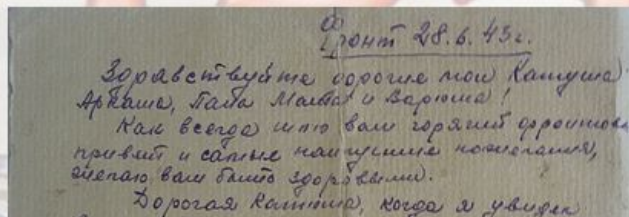 Фронт 28.6.43г.
Здравствуйте дорогие мои Катюша
Аркаша, Папа Мама и Варюша!
Как всегда шлю вам горячий фронтовой
привет и самые наилучшие пожелания,
желаю вам быть здоровыми.
Дорогая Катюша, когда я увидел